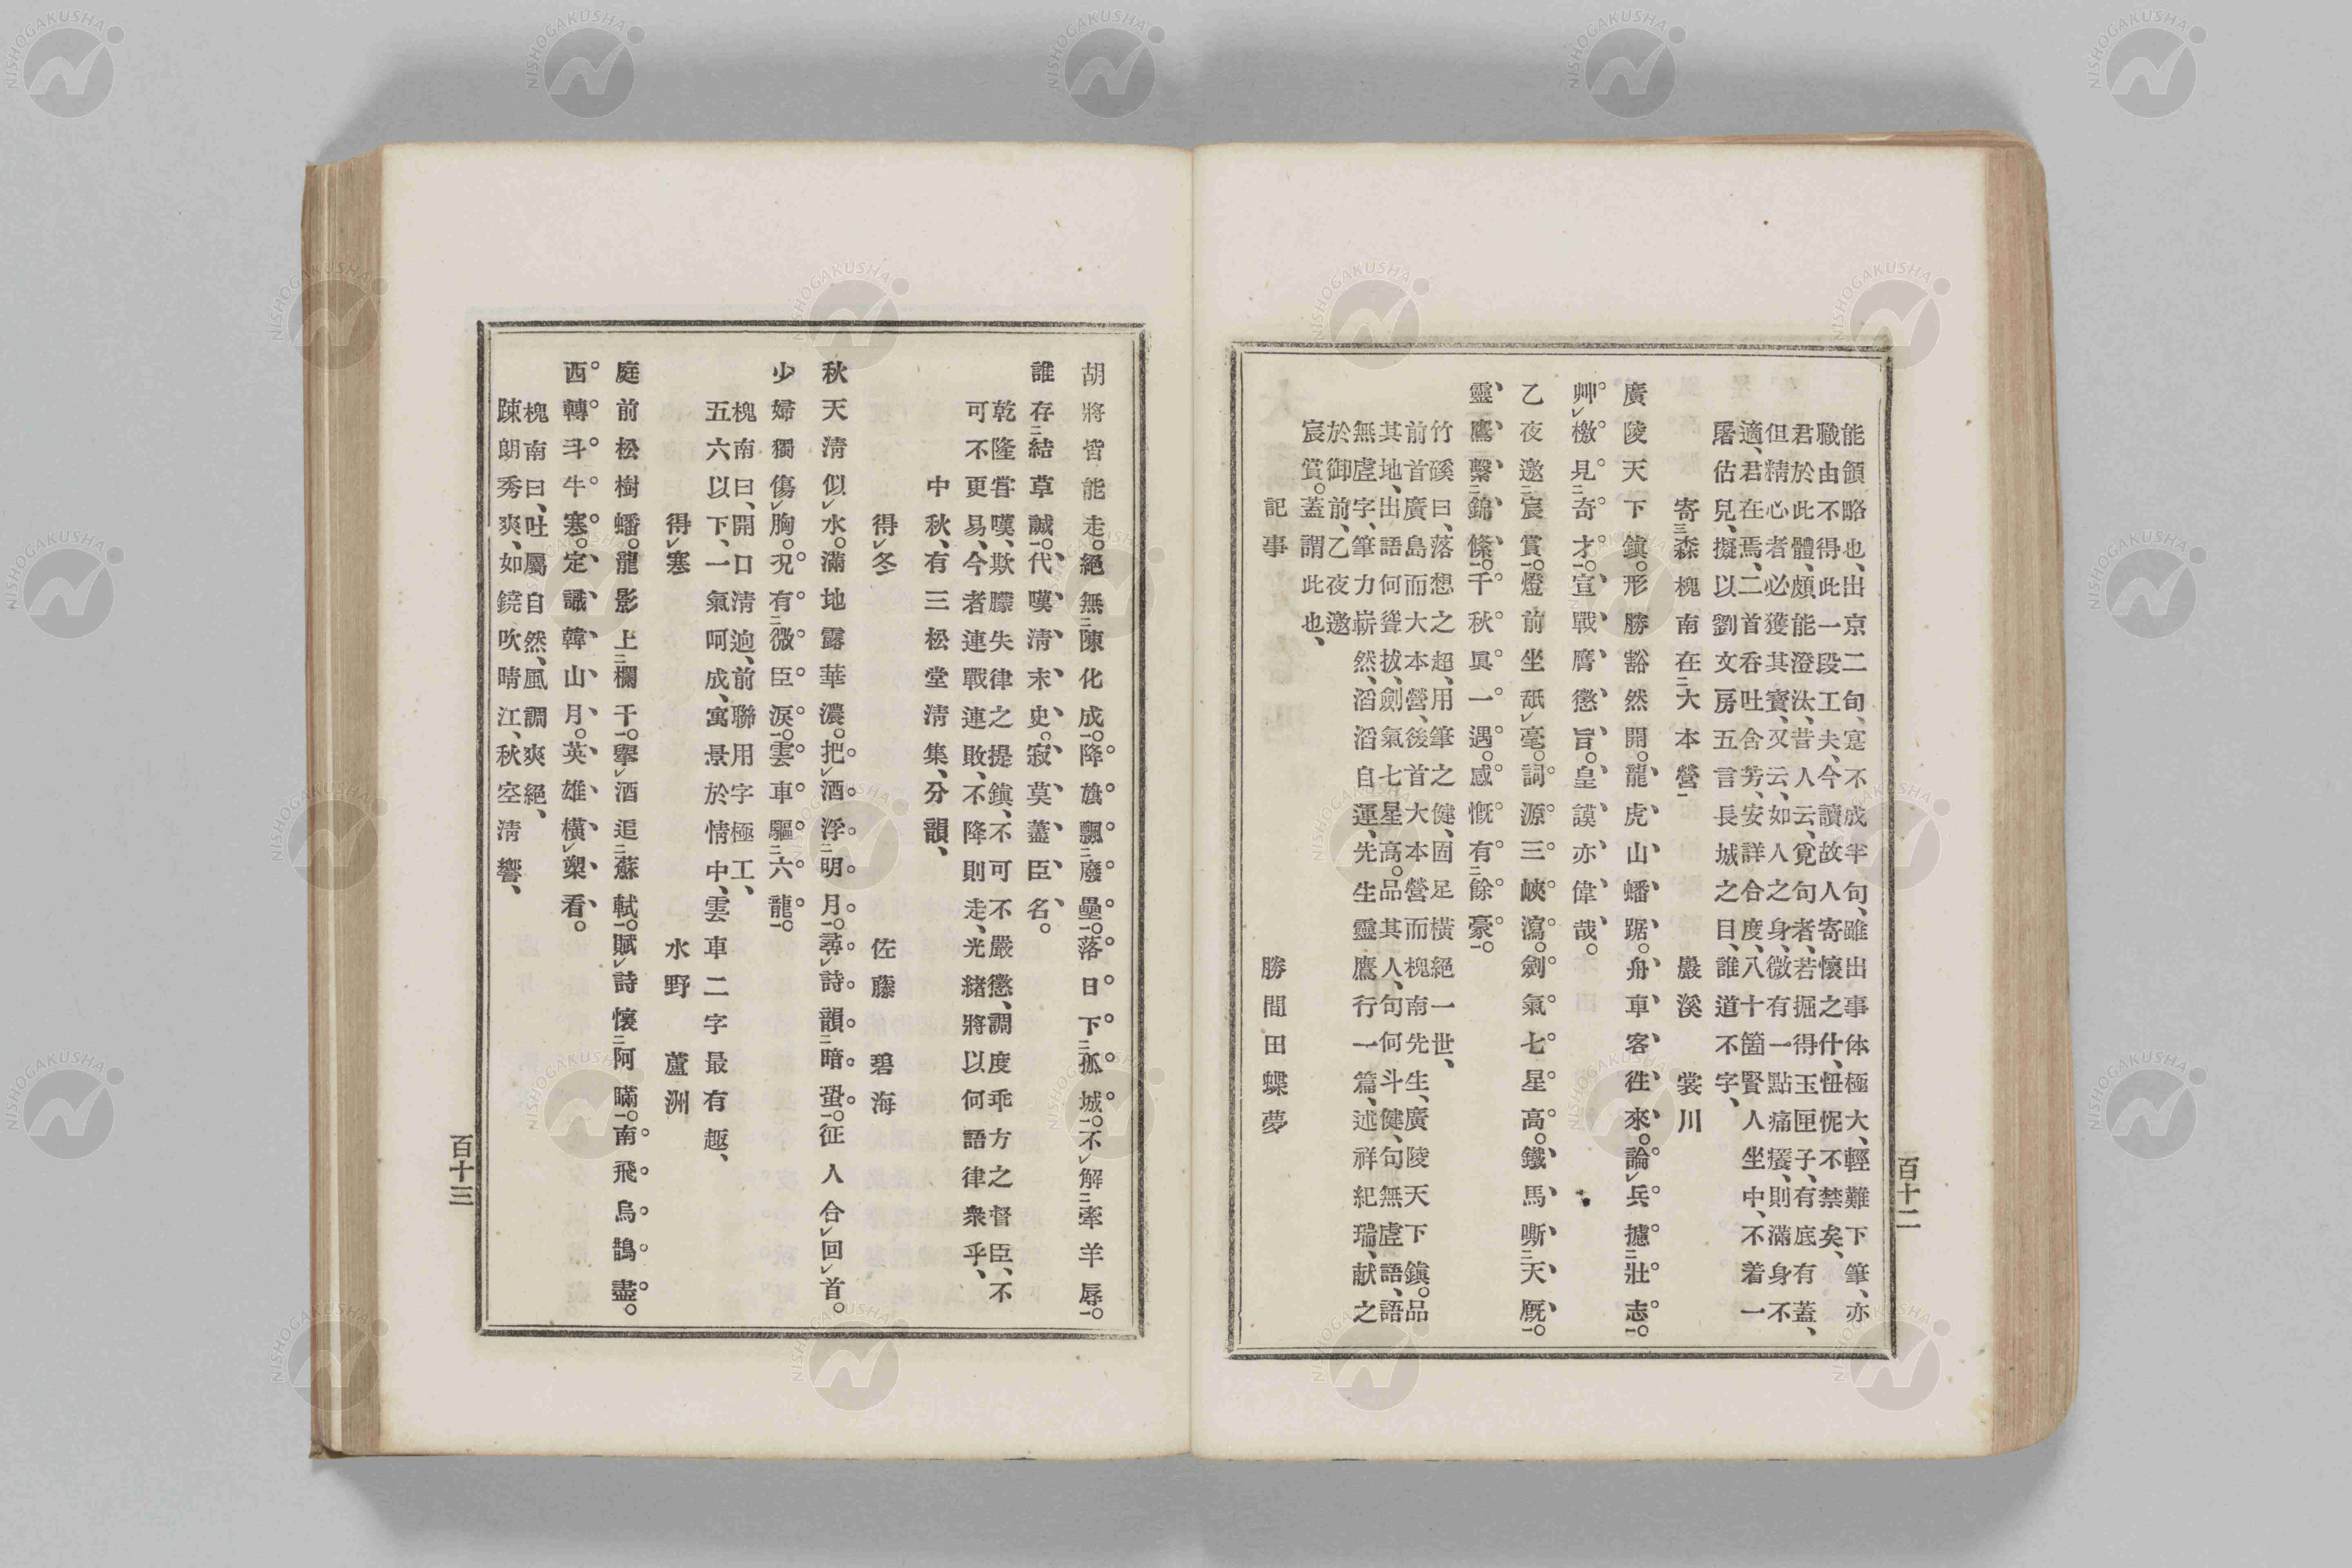 能領略也、出京二旬、寔不成半句、雖出事体極大、輕難下筆、亦
職由不得此一段工夫、今讀故人寄懷之什、忸怩不禁矣、
君於此體、頗能澄汰、昔人云、覓句者、若掘得玉匣子、有底有蓋、
但精心者必獲其寳、又云、如人之身、微有一點痛癢、則滿身不
適、君在焉、二首呑吐含芳、安詳合度、八十箇賢人坐中、不着一
屠估兒、擬以劉文房五言長城之目、誰道不字、
寄三森槐南在二大本營一 巖溪裳川
廣陵天下鎭。形勝豁然開。龍虎山蟠踞。舟車客徃來。論レ兵攄二壯志一。
艸レ檄見二奇才一。宣戰膺懲旨。皇謨亦偉哉。
乙夜邀二宸賞一。燈前坐舐レ毫。詞源三峽瀉。劍氣七星高。鐵馬嘶二天厩一。
靈鷹繫二錦絛一。千秋眞一遇。感慨有二餘豪一。
竹磎曰、落想之超、用筆之健、固足橫絕一世、
前首廣島而大本營、後首大本營而槐南先生、廣陵天下鎭。品
其地、出語何聳拔、劍氣七星高。品其人、句何斗健、句無虛語、語
無虛字、筆力嶄然、滔滔自運、先生靈鷹行一篇、述祥紀瑞、献之
於御前、乙夜邀
宸賞。蓋謂此也、
記事 勝間田蝶夢
百十二
胡將皆能走。絕無二陳化成一。降旗飄二廢壘一。落日下二孤城一。不レ解二牽羊辱一。
誰存二結草誠一。代嘆淸末史。寂莫蓋臣名。
乾隆嘗嘆、欺朦失律之提鎭、不可不嚴懲、調度乖方之督臣、不
可不更易、今者連戰連敗、不降則走、光緒將以何語律衆乎、
中秋、有三松堂淸集、分韻、
得レ冬 佐藤碧海
秋天淸似レ水。滿地露華濃。把レ酒浮二明月一。尋レ詩韻二暗蛩一。征人合レ回レ首。
少婦獨傷レ胸。況有二微臣淚一。雲車驅二六龍一。
槐南曰、開口淸逈、前聯用字極工、
五六以下、一氣呵成、寓景於情中、雲車二字最有趣、
得レ寒 水野蘆洲
庭前松樹蟠。龍影上二欄干一。擧レ酒追二蘇軾一。賦レ詩懷二阿瞞一。南飛烏鵲盡。
西轉斗牛寒。定識韓山月。英雄橫レ槊看。
槐南曰、吐屬自然、風調爽絕、
踈朗秀爽、如鐃吹晴江、秋空淸響、
百十三
NISHOGAKUSHA